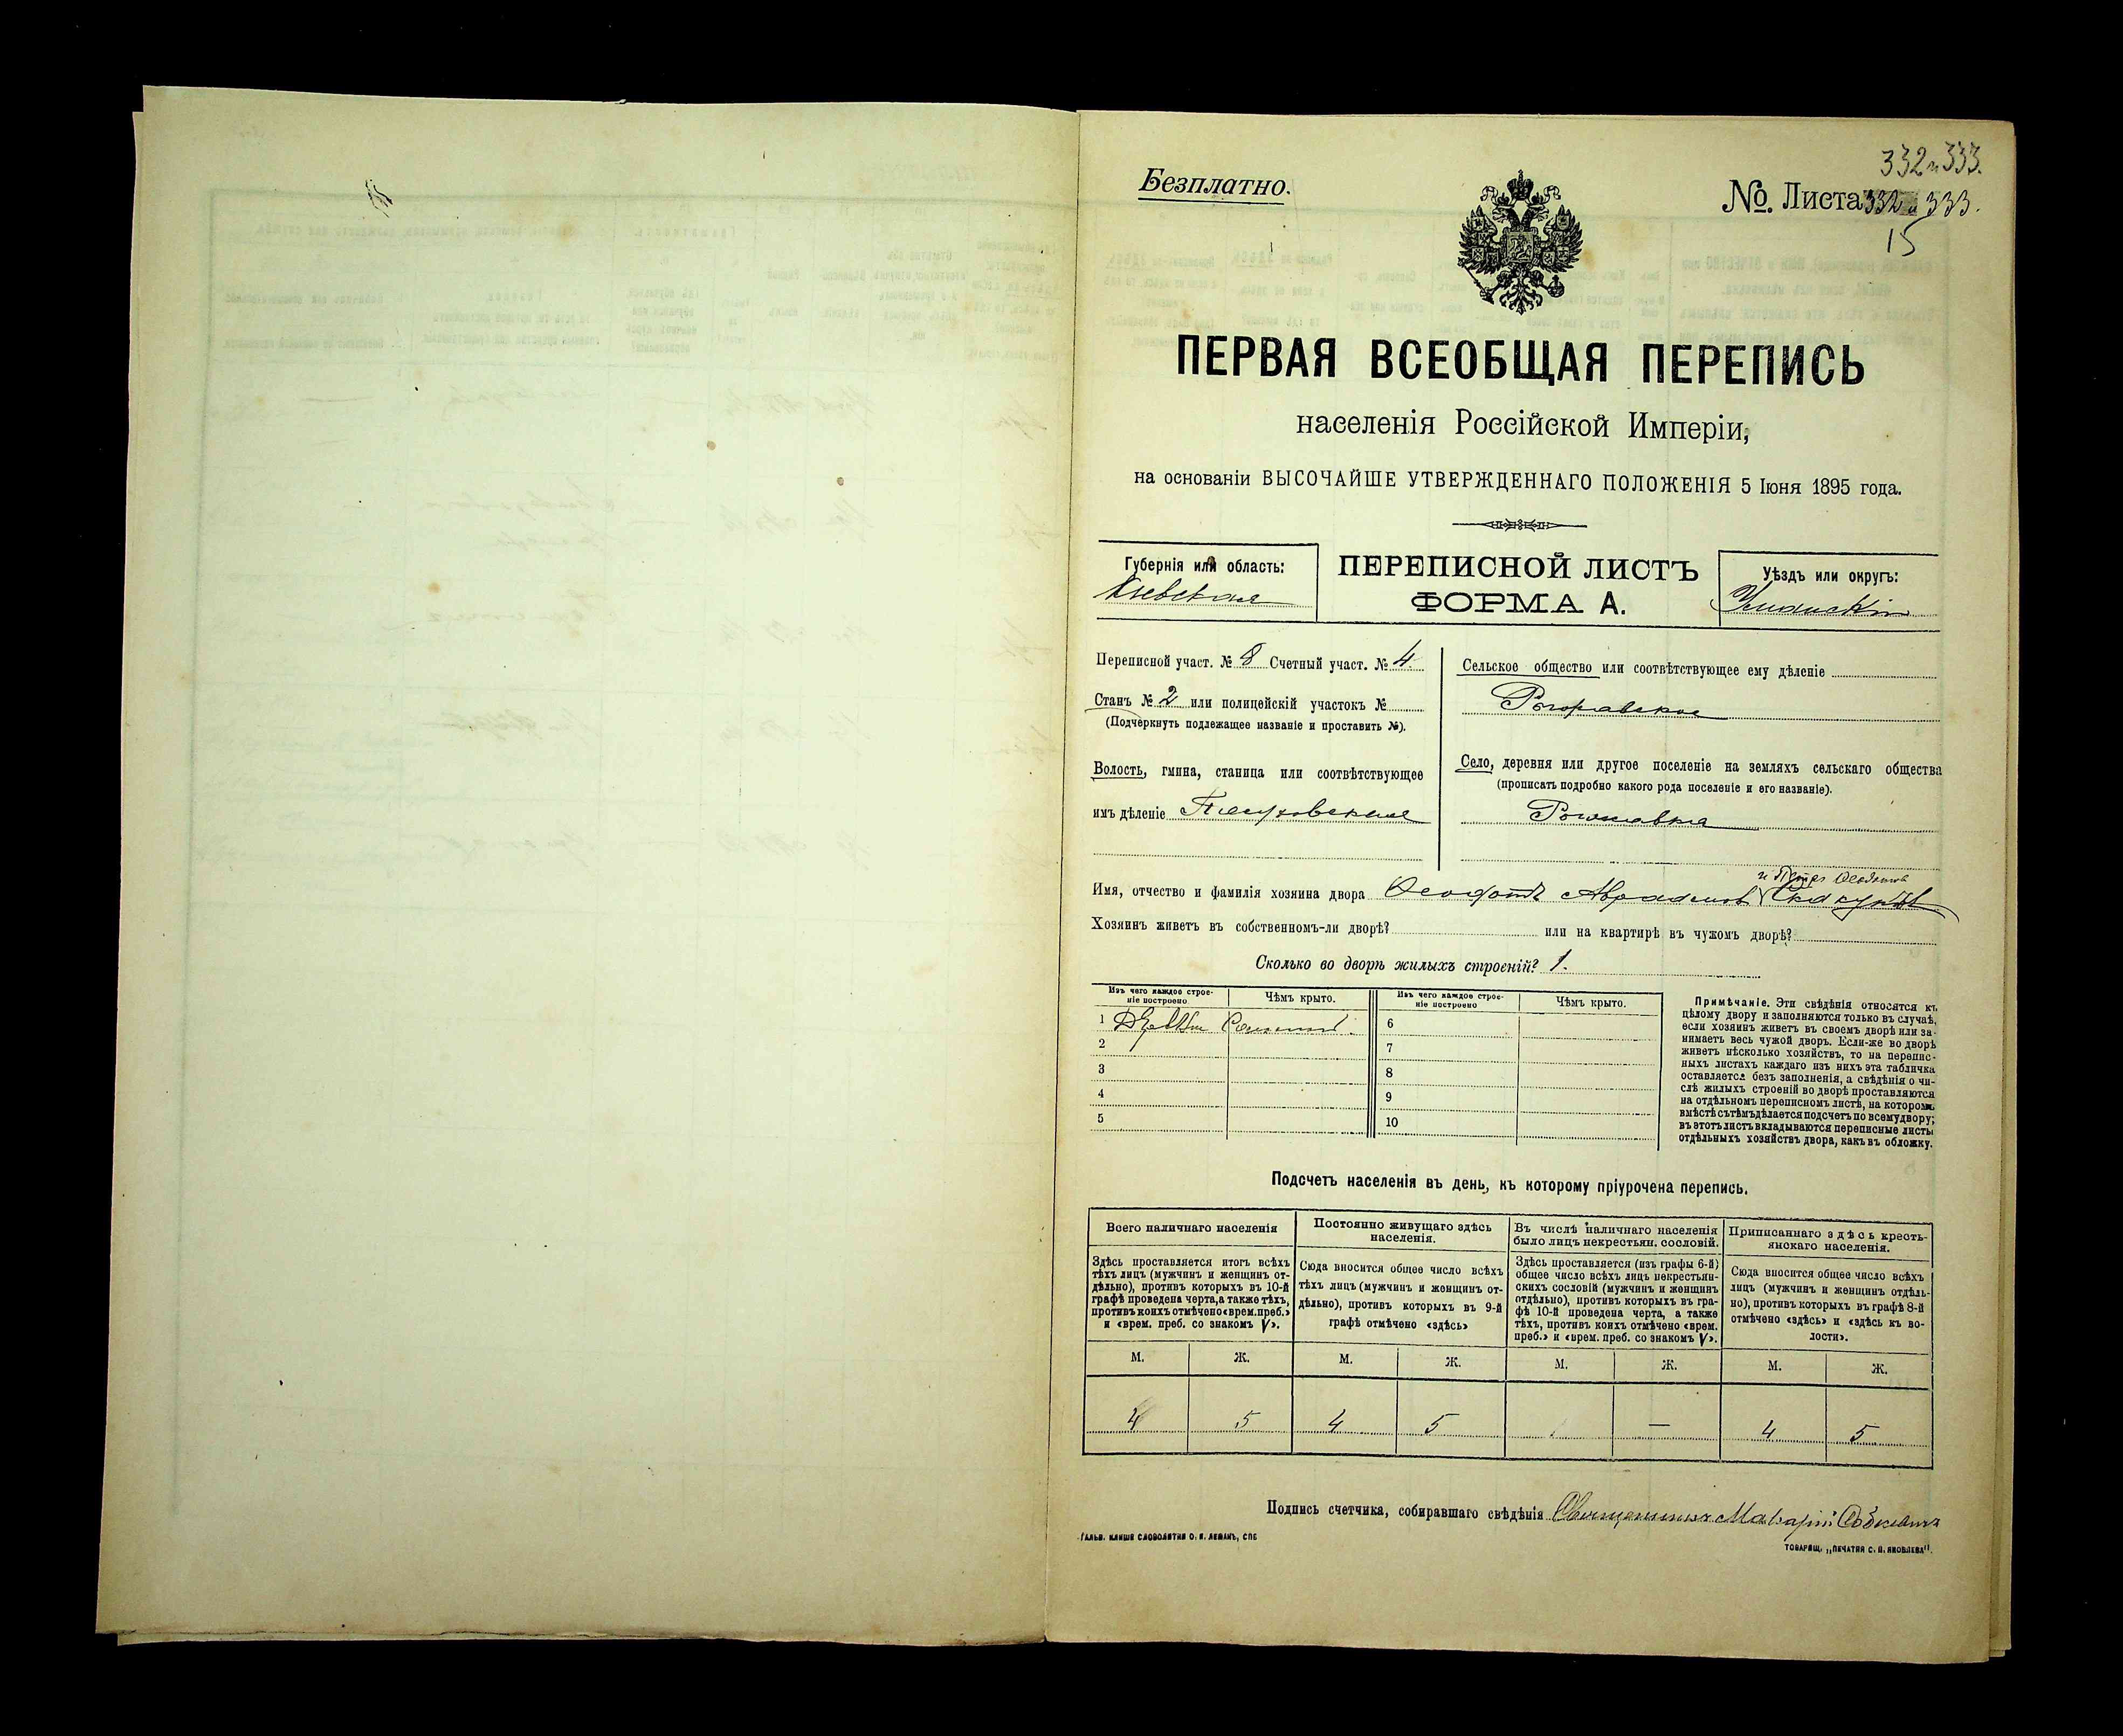 332 и 333.
Безплатно.
№ Листа 332 и 333.
15
ПЕРВАЯ ВСЕОБЩАЯ ПЕРЕПИСЬ
населенія Россійской Имперіи,
на основаніи ВЫСОЧАЙШЕ УТВЕРЖДЕННАГО ПОЛОЖЕНІЯ 5 Іюня 1895 года.
Губернія или область:
Кіевская
ПЕРЕПИСНОЙ ЛИСТЪ
ФОРМА А.
Уѣздъ или округъ:
Уманскій
Переписной участ. № 8 Счетный участ. № 4
Станъ № 2 или полицейскій участокъ №
(Подчеркнуть подлежащее названіе и проставить №).
Волость, гмина, станица или соотвѣтствующее
имъ дѣленіе
Сельское общество или соотвѣтствующее ему дѣленіе
Село, деревня или другое поселеніе на земляхъ сельскаго общества
(прописать подробно какого рода поселеніе и его названіе).
и Петръ Ѳеодотовъ
Имя, отчество и фамилія хозяина двора Ѳеодотъ Аврамовъ
Хозяинъ живетъ въ собственномъ-ли дворѣ? или на квартирѣ въ чужомъ дворѣ?
Сколько во дворѣ жилыхъ строеній? 1.
Изъ чего каждое строе-
ніе построено
Чѣмъ крыто.
1
Соломой.
2
3
4
5
Изъ чего каждое строе-
ніе построено
Чѣмъ крыто.
6
7
8
9
10
Примѣчаніе. Эти свѣдѣнія относятся къ
цѣлому двору и заполняются только въ случаѣ,
если хозяинъ живетъ въ своемъ дворѣ или за-
нимаетъ весь чужой дворъ. Если-же во дворѣ
живетъ нѣсколько хозяйствъ, то на перепис-
ныхъ листахъ каждаго изъ нихъ эта табличка
оставляется безъ заполненія, а свѣдѣнія о чи-
слѣ жилыхъ строеній во дворѣ проставляются
на отдѣльномъ переписномъ листѣ, на которомъ
вмѣстѣ съ тѣмъ дѣлается подсчетъ по всему двору;
въ этотъ листъ вкладываются переписные листы
отдѣльныхъ хозяйствъ двора, какъ въ обложку.
Подсчетъ населенія въ день, къ которому пріурочена перепись.
Всего наличнаго населенія
Здѣсь проставляется итогъ всѣхъ
тѣхъ лицъ (мужчинъ и женщинъ от-
дѣльно), противъ которыхъ въ 10-й
графѣ проведена черта, а также тѣхъ,
противъ коихъ отмѣчено «врем. преб.»
и «врем. преб. со знакомъ V».
Постоянно живущаго здѣсь
населенія.
Сюда вносится общее число всѣхъ
тѣхъ лицъ (мужчинъ и женщинъ от-
дѣльно), противъ которыхъ въ 9-й
графѣ отмѣчено «здѣсь»
Въ числѣ наличнаго населенія
было лицъ некрестьян. сословій.
Здѣсь проставляется (изъ графы 6-й)
общее число всѣхъ лицъ некрестьян-
скихъ сословій (мужчинъ и женщинъ
отдѣльно), противъ которыхъ въ гра-
фѣ 10-й проведена черта, а также
тѣхъ, противъ коихъ отмѣчено «врем.
преб.» и «врем. преб. со знакомъ V».
Приписаннаго здѣсь кресть-
янскаго населенія.
Сюда вносится общее число всѣхъ
лицъ (мужчинъ и женщинъ отдѣль-
но), противъ которыхъ въ графѣ 8-й
отмѣчено «здѣсь» и «здѣсь къ во-
лости».
М. Ж. М. Ж. М. Ж. М. Ж.
4 5 4 5 — 4 5
Подпись счетчика, собиравшаго свѣдѣнія Священникъ Макарій
ГАЛЬВ. КЛИШЕ СЛОВОЛИТНИ О. И. ЛЕМАНЪ, СПБ
ТОВАРИЩ. „ПЕЧАТНЯ С. П. ЯКОВЛЕВА".